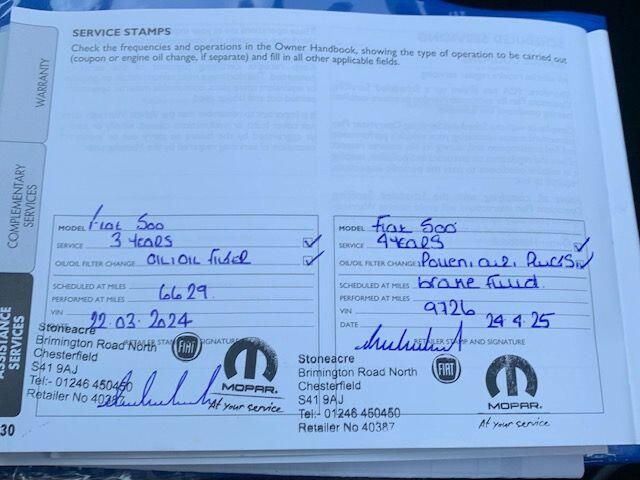 SERVICE STAMPS
Check the frequencies and operations in the Owner Handbook, showing the type of operation to be carried out
(coupon or engine oil change, if separate) and fill in all other applicable fields.
WARRANTY
COMPLEMENTARY
SERVICES
ASSISTANCE
SERVICES
30
MODEL Fiat 500
SERVICE 3 YEARS ✓
OIL/OIL FILTER CHANGE OIL/OIL FILTER ✓
SCHEDULED AT MILES
PERFORMED AT MILES 6629
VIN
22.03.2024
RETAILER STAMP
Stoneacre
Brimington Road North
Chesterfield
S41 9AJ
Tel:- 01246 450450
Retailer No 40387
FIAT
MOPAR.
At your service
MODEL Fiat 500
SERVICE 4 YEARS ✓
OIL/OIL FILTER CHANGE Pollen, air, Plugs ✓
SCHEDULED AT MILES brake fluid.
PERFORMED AT MILES
VIN 9726
DATE 24.4.25
RETAILER STAMP AND SIGNATURE
Stoneacre
Brimington Road North
Chesterfield
S41 9AJ
Tel:- 01246 450450
Retailer No 40387
FIAT
MOPAR.
At your service